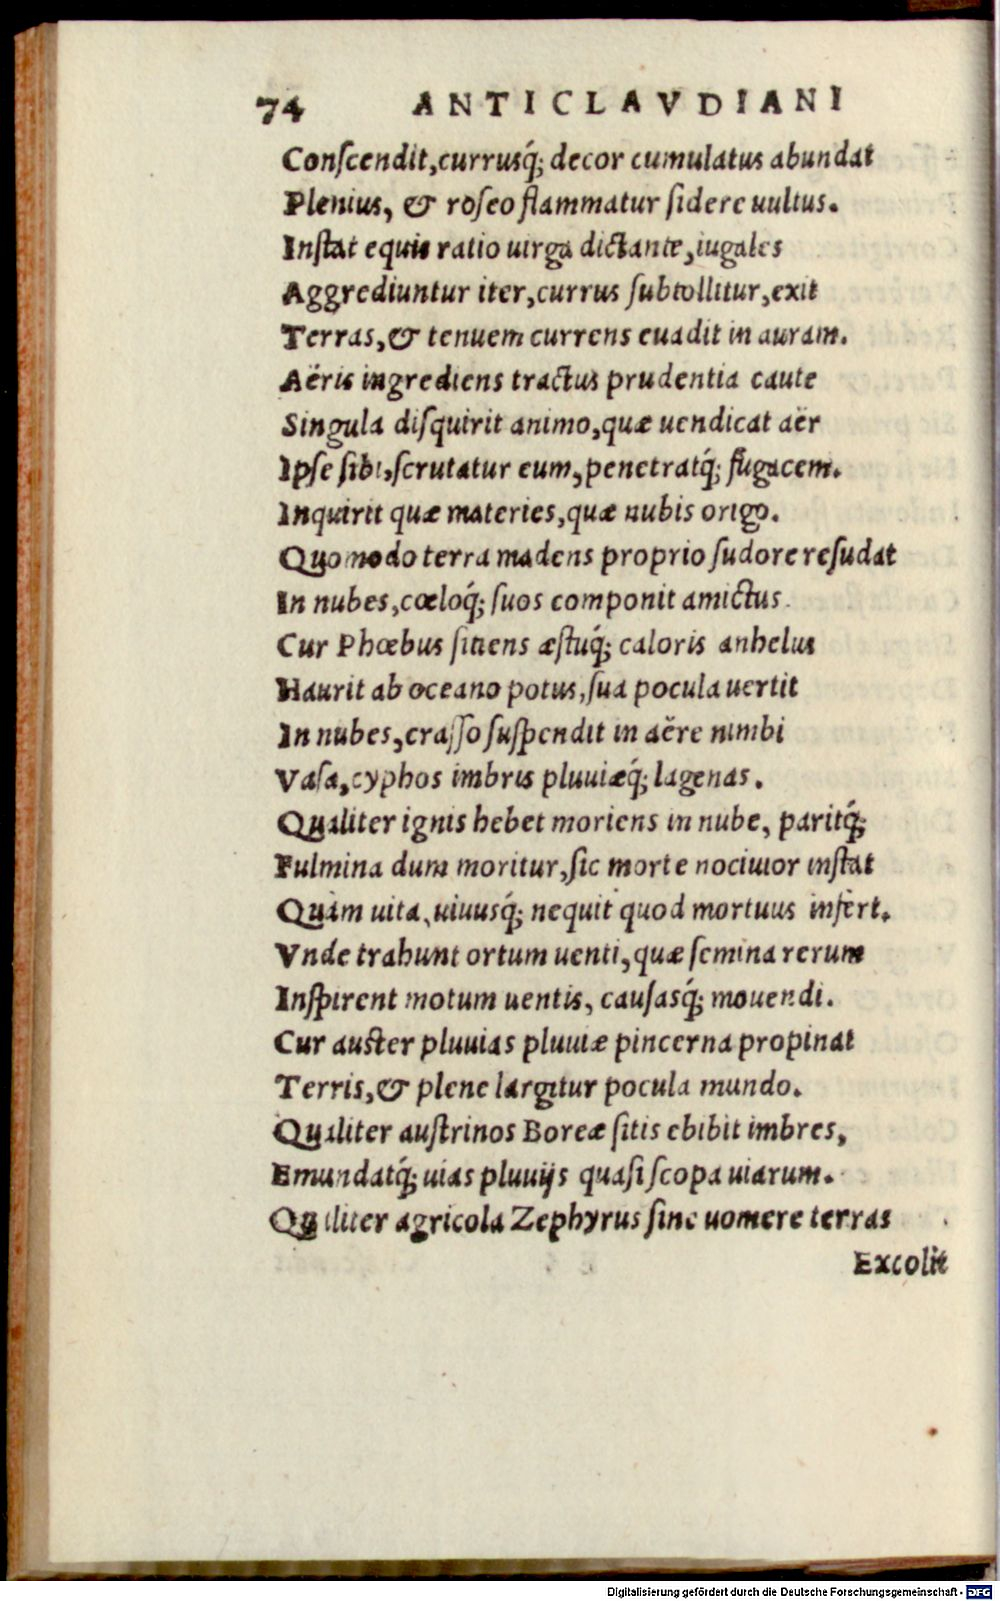 74 ANTICLAVDIANI
Conſcendit,currusq́; decor cumulatus abundat
Plenius, & roſeo flammatur ſidere uultus.
Inſtat equis ratio uirga dictante,iugales
Aggrediuntur iter,currus ſubtollitur,exit
Terras,& tenuem currens euadit in auram.
Aëris ingrediens tractus prudentia caute
Singula diſquirit animo,quæ uendicat aër
Ipſe ſibi,ſcrutatur eum,penetratq́; fugacem.
Inquirit quæ materies,quæ nubis origo.
Quomodo terra madens proprio ſudore reſudat
In nubes,cœloq́; ſuos componit amictus.
Cur Phœbus ſitiens æſtuq́; caloris anhelus
Haurit ab oceano potus,ſua pocula uertit
In nubes,craſſo ſuſpendit in aëre nimbi
Vaſa,cyphos imbris pluuiæq́; lagenas.
Qualiter ignis hebet moriens in nube, paritq́;
Fulmina dum moritur,ſic morte nociuior inſtat
Quàm uita,uiuusq́; nequit quod mortuus infert.
Vnde trahunt ortum uenti,quæ ſemina rerum
Inſpirent motum uentis, cauſasq́; mouendi.
Cur auſter pluuias pluuiæ pincerna propinat
Terris,& plene largitur pocula mundo.
Qualiter auſtrinos Boreæ ſitis ebibit imbres,
Emundatq́; uias pluuijs quaſi ſcopa uiarum.
Qualiter agricola Zephyrus ſine uomere terras
Excolit
Digitalisierung gefördert durch die Deutsche Forschungsgemeinschaft - DFG